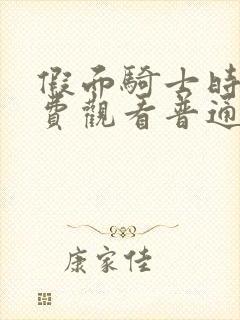 假而騎士時
費觀看普通
康家佳